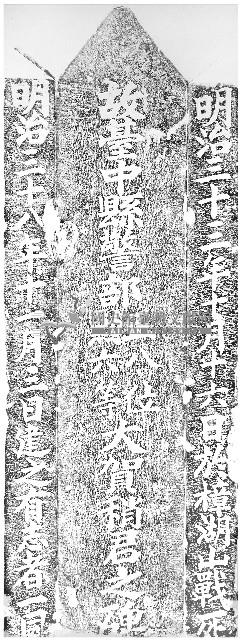 明治三十二年十月十六日於樟湖山戰死
故臺中縣警部正八位
勳八等大賀積君之碑
明治三十八年十二月三日建之有志者一同